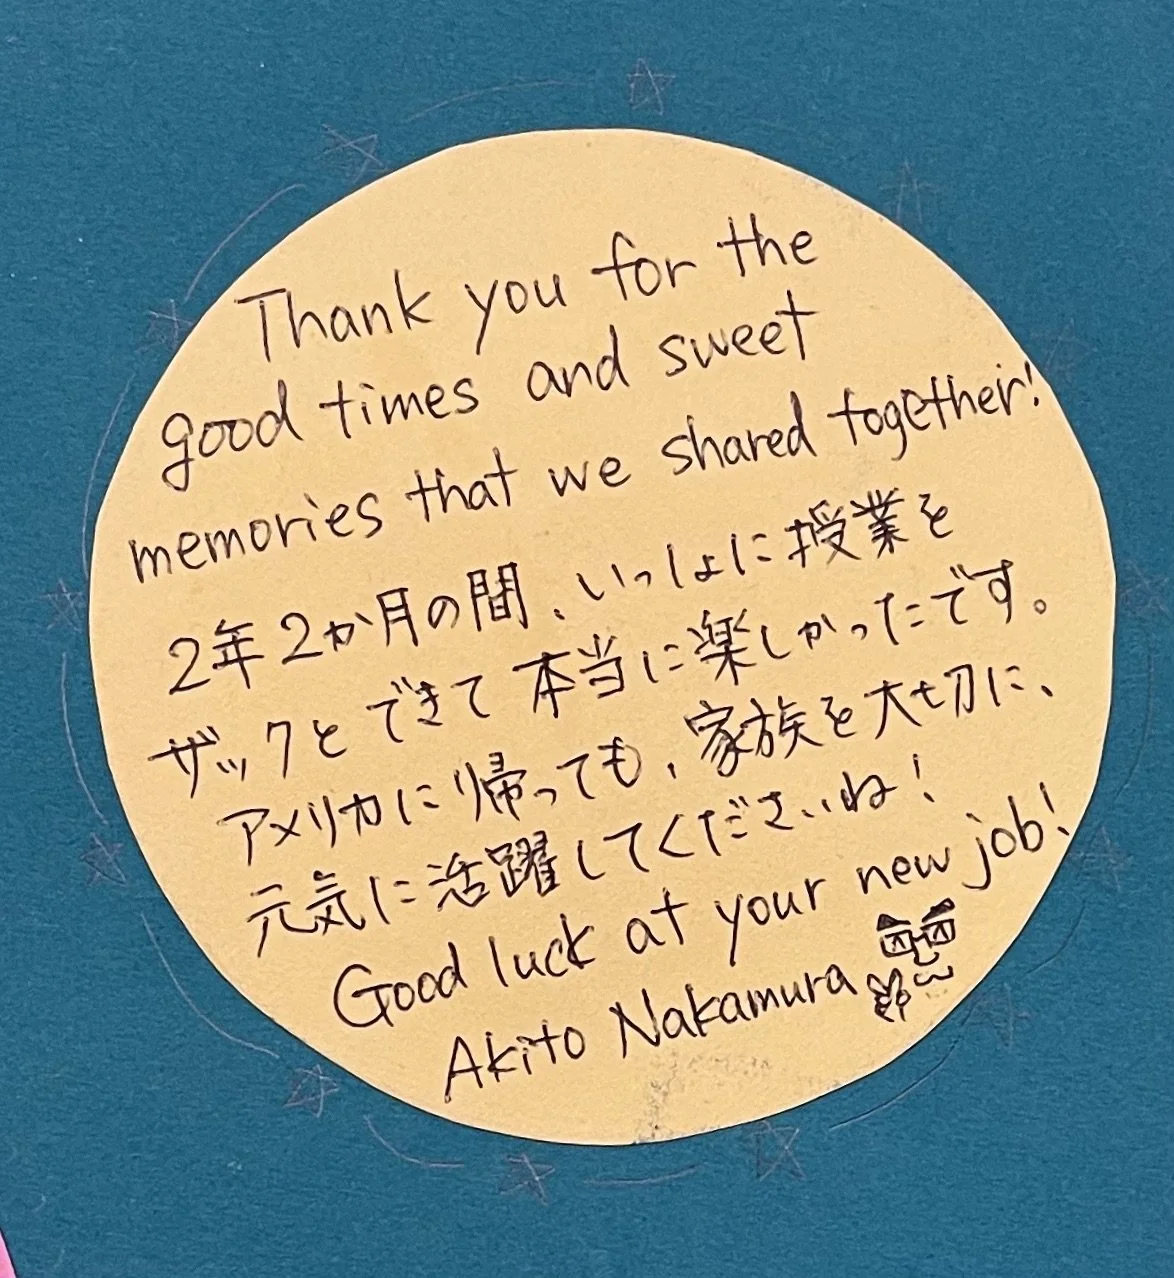 Thank you for the
good times and sweet
memories that we shared together!
2年2か月の間、いっしょに授業を
ザックとできて本当に楽しかったです。
アメリカに帰っても、家族を大切に、
元気に活躍してくださいね！
Good luck at your new job!
Akito Nakamura